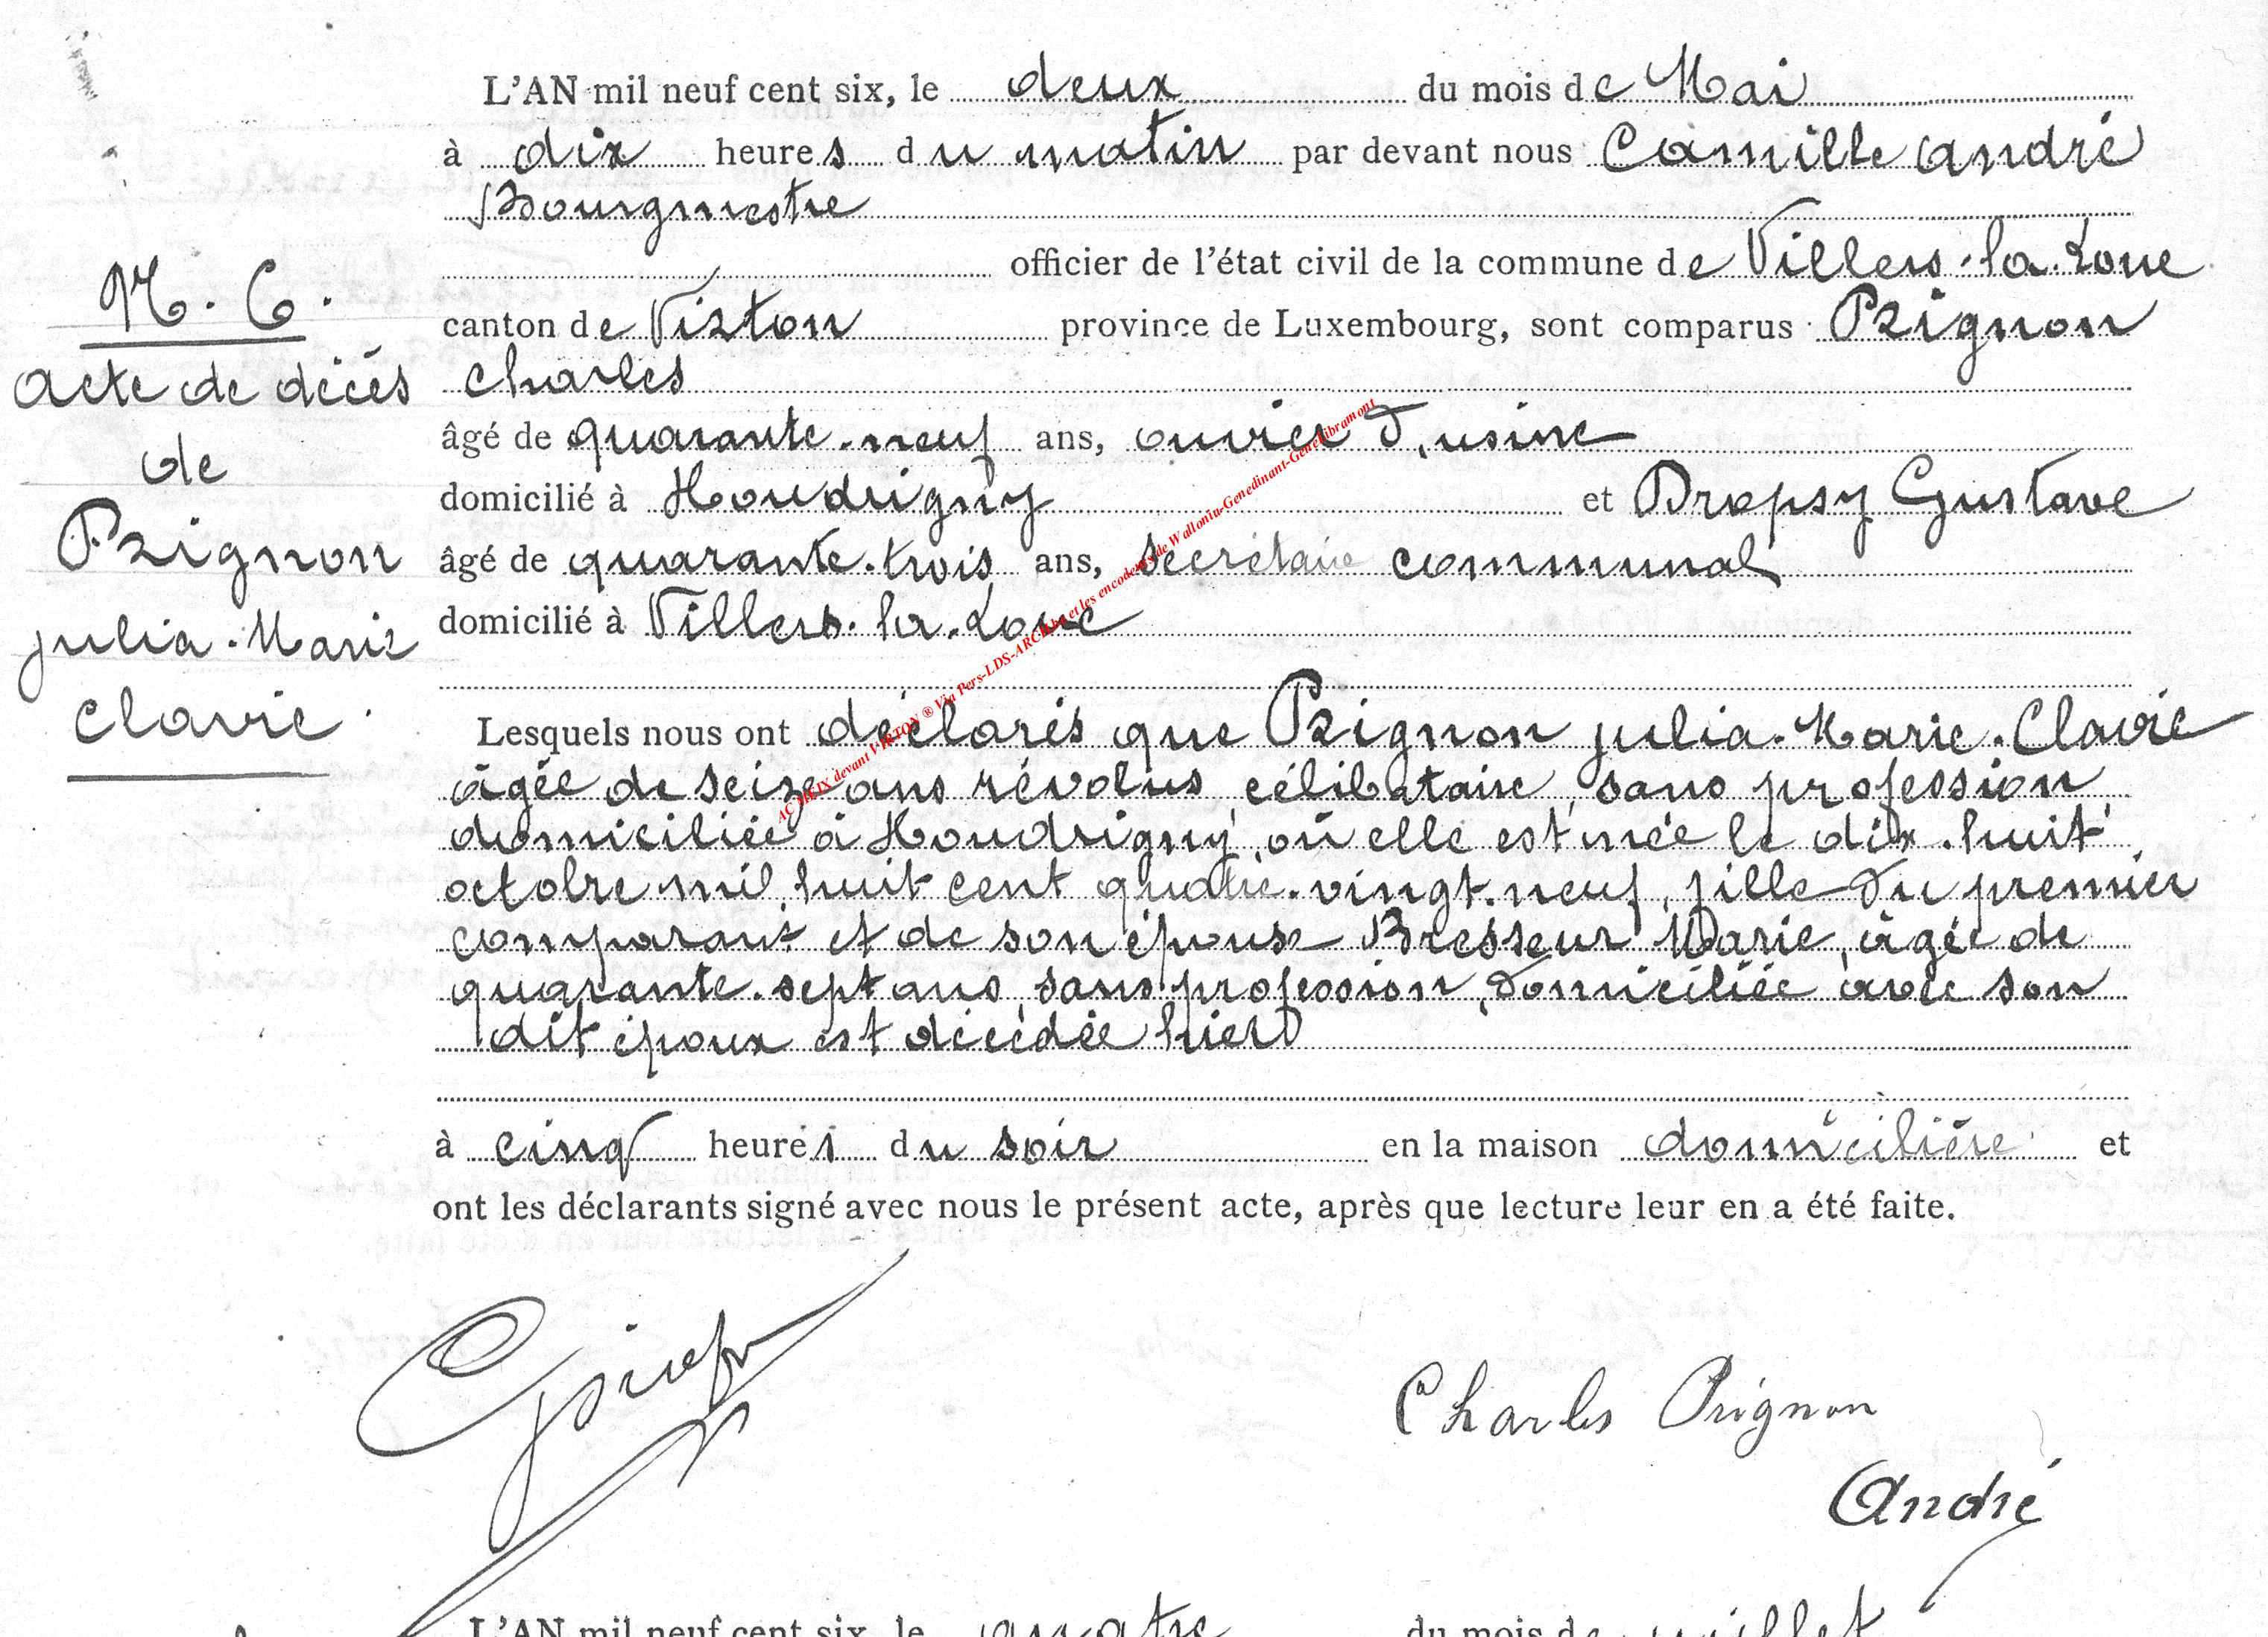 L'AN mil neuf cent six, le deux du mois de Mai
à dix heures du matin par devant nous Camille André
Bourgmestre
officier de l'état civil de la commune de Villers-la-Loue
canton de Virton province de Luxembourg, sont comparus Prignon
Charles
âgé de quarante-neuf ans, ouvrier d'usine
domicilié à Houdrigny et Dropsy Gustave
âgé de quarante-trois ans, secrétaire communal
domicilié à Villers-la-Loue
N. 6.
acte de décès
de
Prignon
julia-Marie
Clavie
Lesquels nous ont déclarés que Prignon julia-Marie-Clavie
âgée de seize ans révolus, célibataire, sans profession,
domiciliée à Houdrigny, où elle est née le dix-huit
octobre mil huit cent quatre-vingt-neuf, fille du premier
comparant et de son épouse Bresseur Marie, âgée de
quarante-sept ans, sans profession, domiciliée avec son
dit époux est décédée hier
à cinq heures du soir en la maison domicilière et
ont les déclarants signé avec nous le présent acte, après que lecture leur en a été faite.
Charles Prignon
André
L'AN mil neuf cent six, le quatre du mois de juillet
AC MEIX devant VIRTON ® Via Pers-LDS-ARCH et les encodeurs de Wallonia-Genedinant-Genelibramont